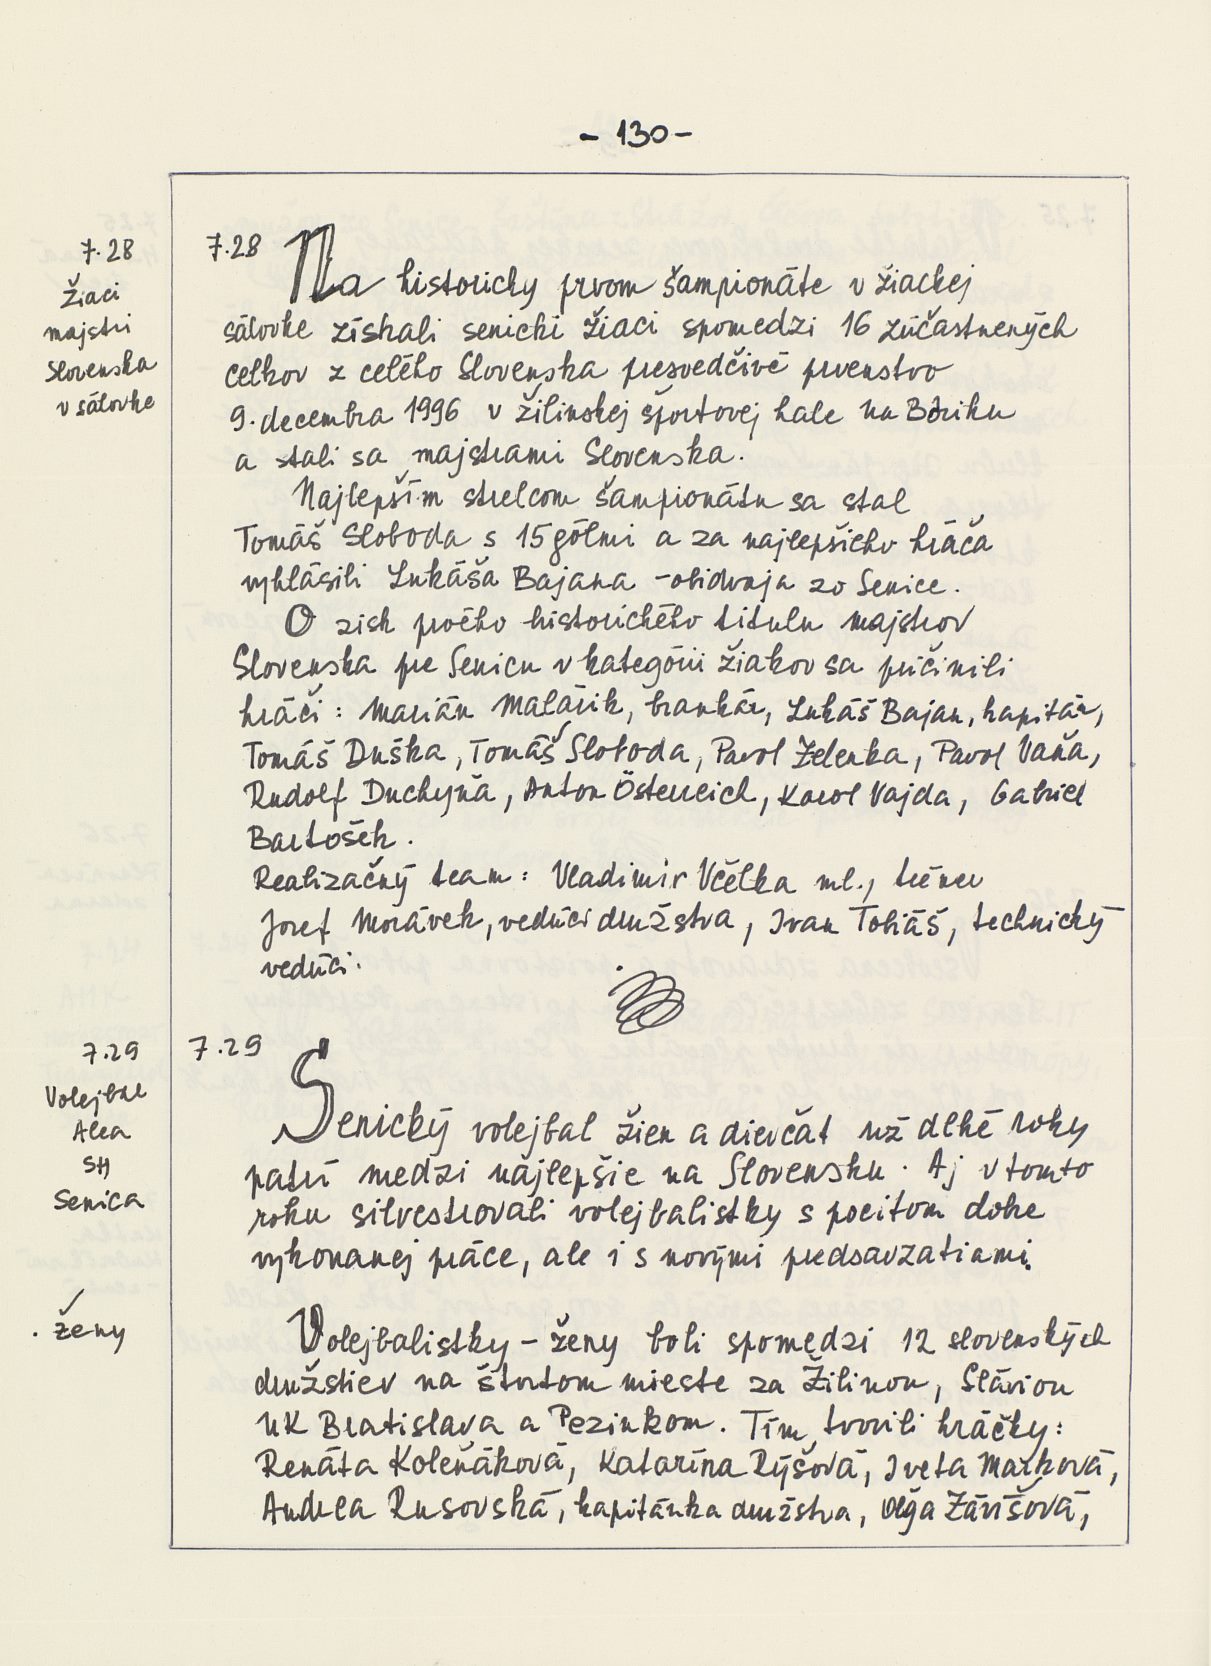 - 130 -
7.28
Žiaci
majstri
Slovenska
v sálovke
7.28 Na historicky prvom šampionáte v žiackej
sálovke získali senickí žiaci spomedzi 16 zúčastnených
celkov z celého Slovenska presvedčivé prvenstvo
9. decembra 1996 v žilinskej športovej hale na Bôriku
a stali sa majstrami Slovenska.
Najlepším strelcom šampionátu sa stal
Tomáš Sloboda s 15 gólmi a za najlepšieho hráča
vyhlásili Lukáša Bajana - obidvaja zo Senice.
O zisk prvého historického titulu majstrov
Slovenska pre Senicu v kategórii žiakov sa pričinili
hráči: Marián Malárik, brankár, Lukáš Bajan, kapitán,
Tomáš Duška, Tomáš Sloboda, Pavol Zelenka, Pavol Vaňa,
Rudolf Duchyňa, Anton Österreich, Karol Vajda, Gabriel
Bartošek.
Realizačný team: Vladimír Včelka ml., tréner
Jozef Morávek, vedúci družstva, Ivan Tobiáš, technický
vedúci.
7.29
Volejbal
Alea
SH
Senica
7.29 Senický volejbal žien a dievčat už dlhé roky
patrí medzi najlepšie na Slovensku. Aj v tomto
roku silvestrovali volejbalistky s pocitom dobre
vykonanej práce, ale i s novými predsavzatiami.
ženy
Volejbalistky - ženy boli spomedzi 12 slovenských
družstiev na štvrtom mieste za Žilinou, Sláviou
UK Bratislava a Pezinkom. Tím tvorili hráčky:
Renáta Koleňáková, Katarína Ryšová, Iveta Marková,
Andrea Rusovská, kapitánka družstva, Oľga Závišová,